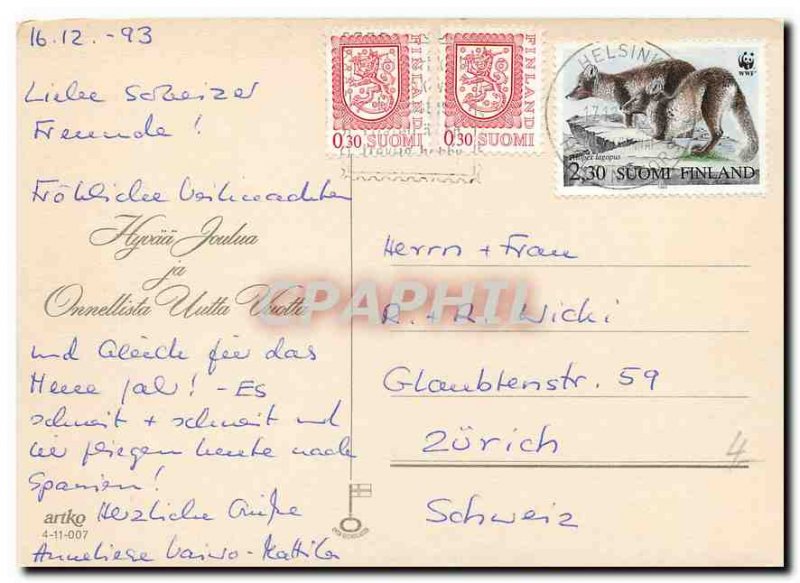 16.12.-93
Liebe Schweizer
Freunde!
Fröhliche Weihnachten
Hyvää Joulua
ja
Onnellista Uutta Vuotta
und Gleich für das
Neue Jahr! - Es
schneit + schneit und
wir fliegen heute nach
Spanien!
Herzliche Grüße
Anneliese
artko
4-11-007
FINLAND
0,30 SUOMI
FINLAND
0,30 SUOMI
HELSINKI
17.12
WWF
Alopex lagopus
2,30 SUOMI FINLAND
Herrn + Frau
R. + R. Wicki
Glaubtenstr. 59
Zürich
Schweiz
4
CPAPHIL